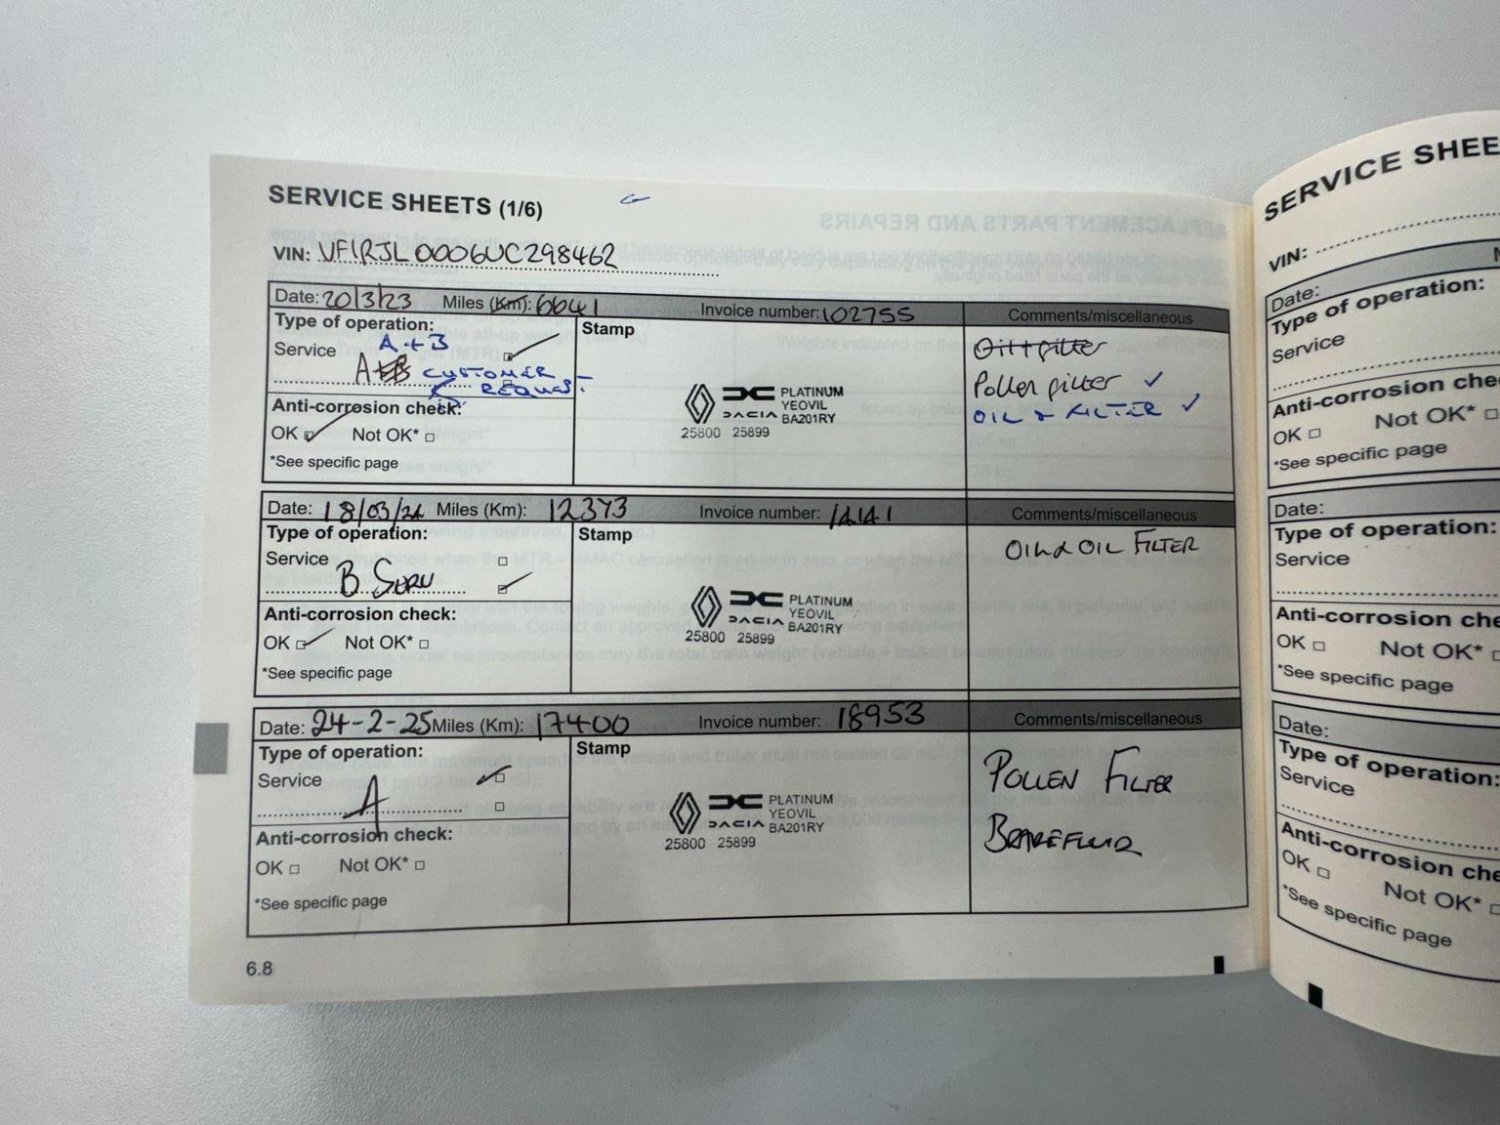 SERVICE SHEETS (1/6)
VIN: VF1RJL0006UC298462
Date: 20/3/23 Miles (Km): 6641 Invoice number: 102755 Comments/miscellaneous
Type of operation:
Stamp
Service A + B
A+B CUSTOMER
REQUEST
Anti-corrosion check:
OK Not OK*
*See specific page
PLATINUM
YEOVIL
DACIA BA201RY
25800 25899
Oil + filter
Pollen filter ✓
OIL + FILTER ✓
Date: 18/03/24 Miles (Km): 12373 Invoice number: 14141 Comments/miscellaneous
Type of operation:
Stamp
Service
B Serv
Anti-corrosion check:
OK Not OK*
*See specific page
PLATINUM
YEOVIL
DACIA BA201RY
25800 25899
OIL & OIL FILTER
Date: 24-2-25 Miles (Km): 17400 Invoice number: 18953 Comments/miscellaneous
Type of operation:
Stamp
Service
A
Anti-corrosion check:
OK Not OK*
*See specific page
PLATINUM
YEOVIL
DACIA BA201RY
25800 25899
POLLEN FILTER
BRAKE FLUID
6.8
SERVICE SHEE
VIN:
Date:
Type of operation:
Service
Anti-corrosion che
OK Not OK*
*See specific page
Date:
Type of operation:
Service
Anti-corrosion che
OK Not OK*
*See specific page
Date:
Type of operation:
Service
Anti-corrosion che
OK Not OK*
*See specific page